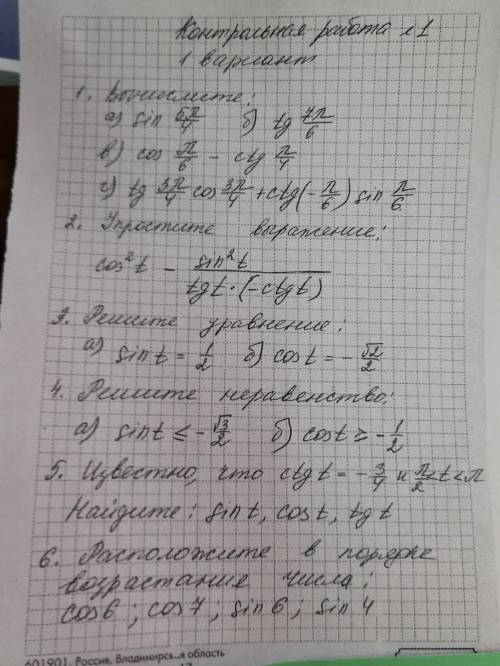 Контрольная работа №1
1 вариант
1. Вычислите:
а) sin 5π/4 б) tg 7π/6
в) cos π/6 - ctg π/4
г) tg 3π/4 cos 3π/4 + ctg(-π/6) sin π/6.
2. Упростите выражение:
cos²t - sin²t/(tgt·(-ctgt))
3. Решите уравнение:
а) sin t = 1/2 б) cost = -√2/2
4. Решите неравенство:
а) sint ≤ -√3/2 б) cost ≥ -1/2
5. Известно, что ctg t = -3/4 и π/2<t<π
Найдите: sin t, cos t, tg t
6. Расположите в порядке
возрастания числа:
cos6; cos7; sin6; sin4
601901, Россия, Владимирск..я область